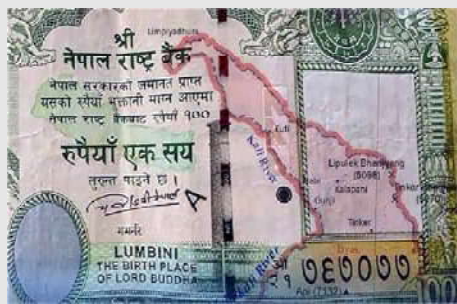 श्री
नेपाल राष्ट्र बैंक
नेपाल सरकारको जमानत प्राप्त
यसको रुपैयाँ भुक्तानी माग्न आएमा
नेपाल राष्ट्र बैंकबाट रुपैयाँ १००
रुपैयाँ एक सय
तुरुन्त पाइने छ ।
गभर्नर
LUMBINI
THE BIRTH PLACE
OF LORD BUDDHA
A
Limpiyadhura
Kuti
Kali River
Lipulek Bhanjyang
(5098)
Nabi
Kalapani
Gunji
Tinker
Kali River
७६७०७७
Api (7132)
100